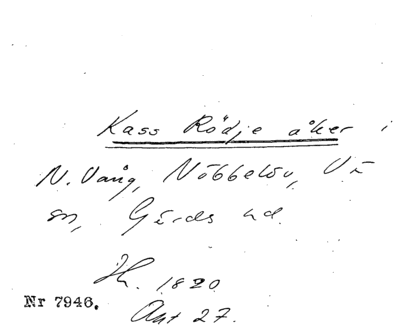 Kass Rödje åker i
N. Vång, Nöbbelöv, Vä
sn, Gärds hd.
Jk. 1820
Nr 7946.
Akt 27.